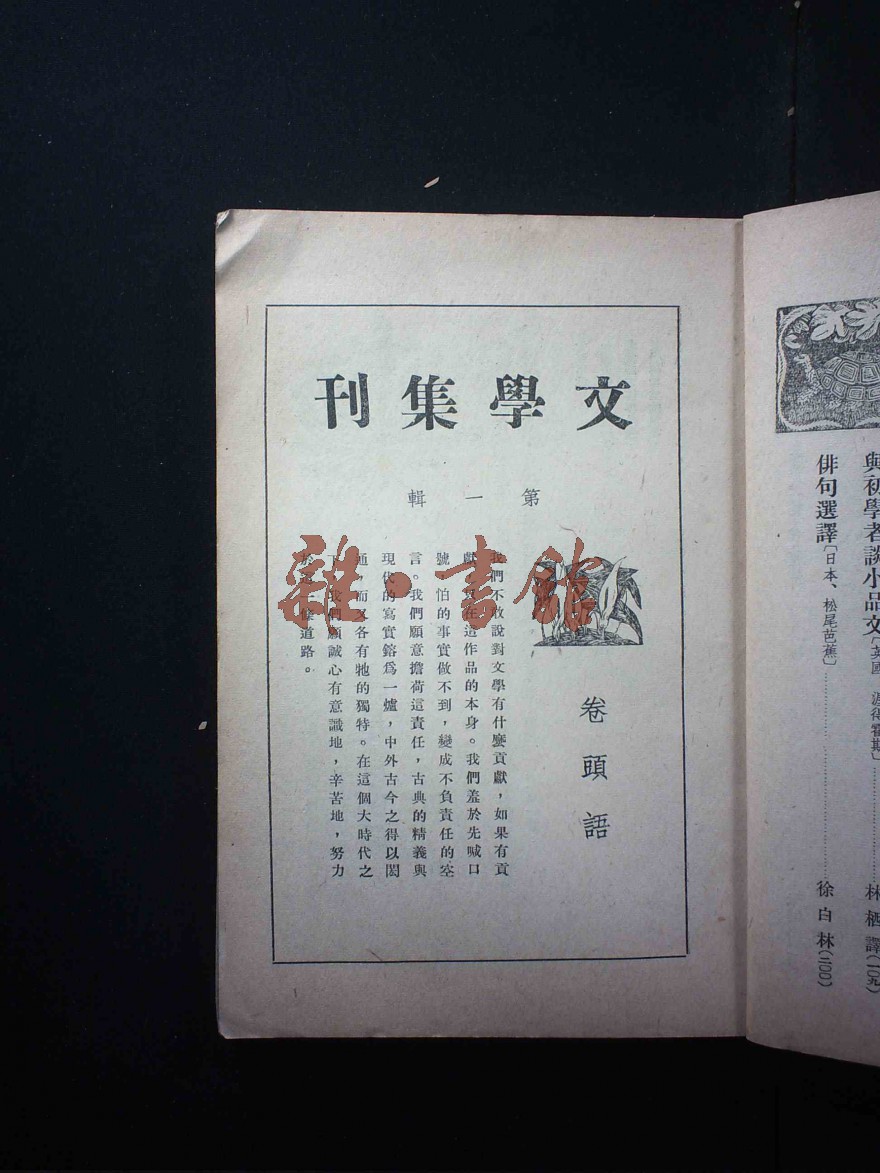 文學集刊
第一輯
卷頭語
我們不敢說對文學有什麼貢獻，如果有貢
獻，在這作品的本身。我們羞於先喊口
號，怕的事實做不到，變成不負責任的空
言。我們願意擔荷這責任，古典的精義與
現代的寫實鎔爲一爐，中外古今之得以閎
通，而又各有牠的獨特。在這個大時代之
下，我們願誠心有意識地，辛苦地，努力
於這一條道路。
與初學者談小品文〔英國 渥得霍斯〕……林栖譯（一九）
俳句選譯〔日本、松尾芭蕉〕……徐白林（二〇〇）
雜·書館